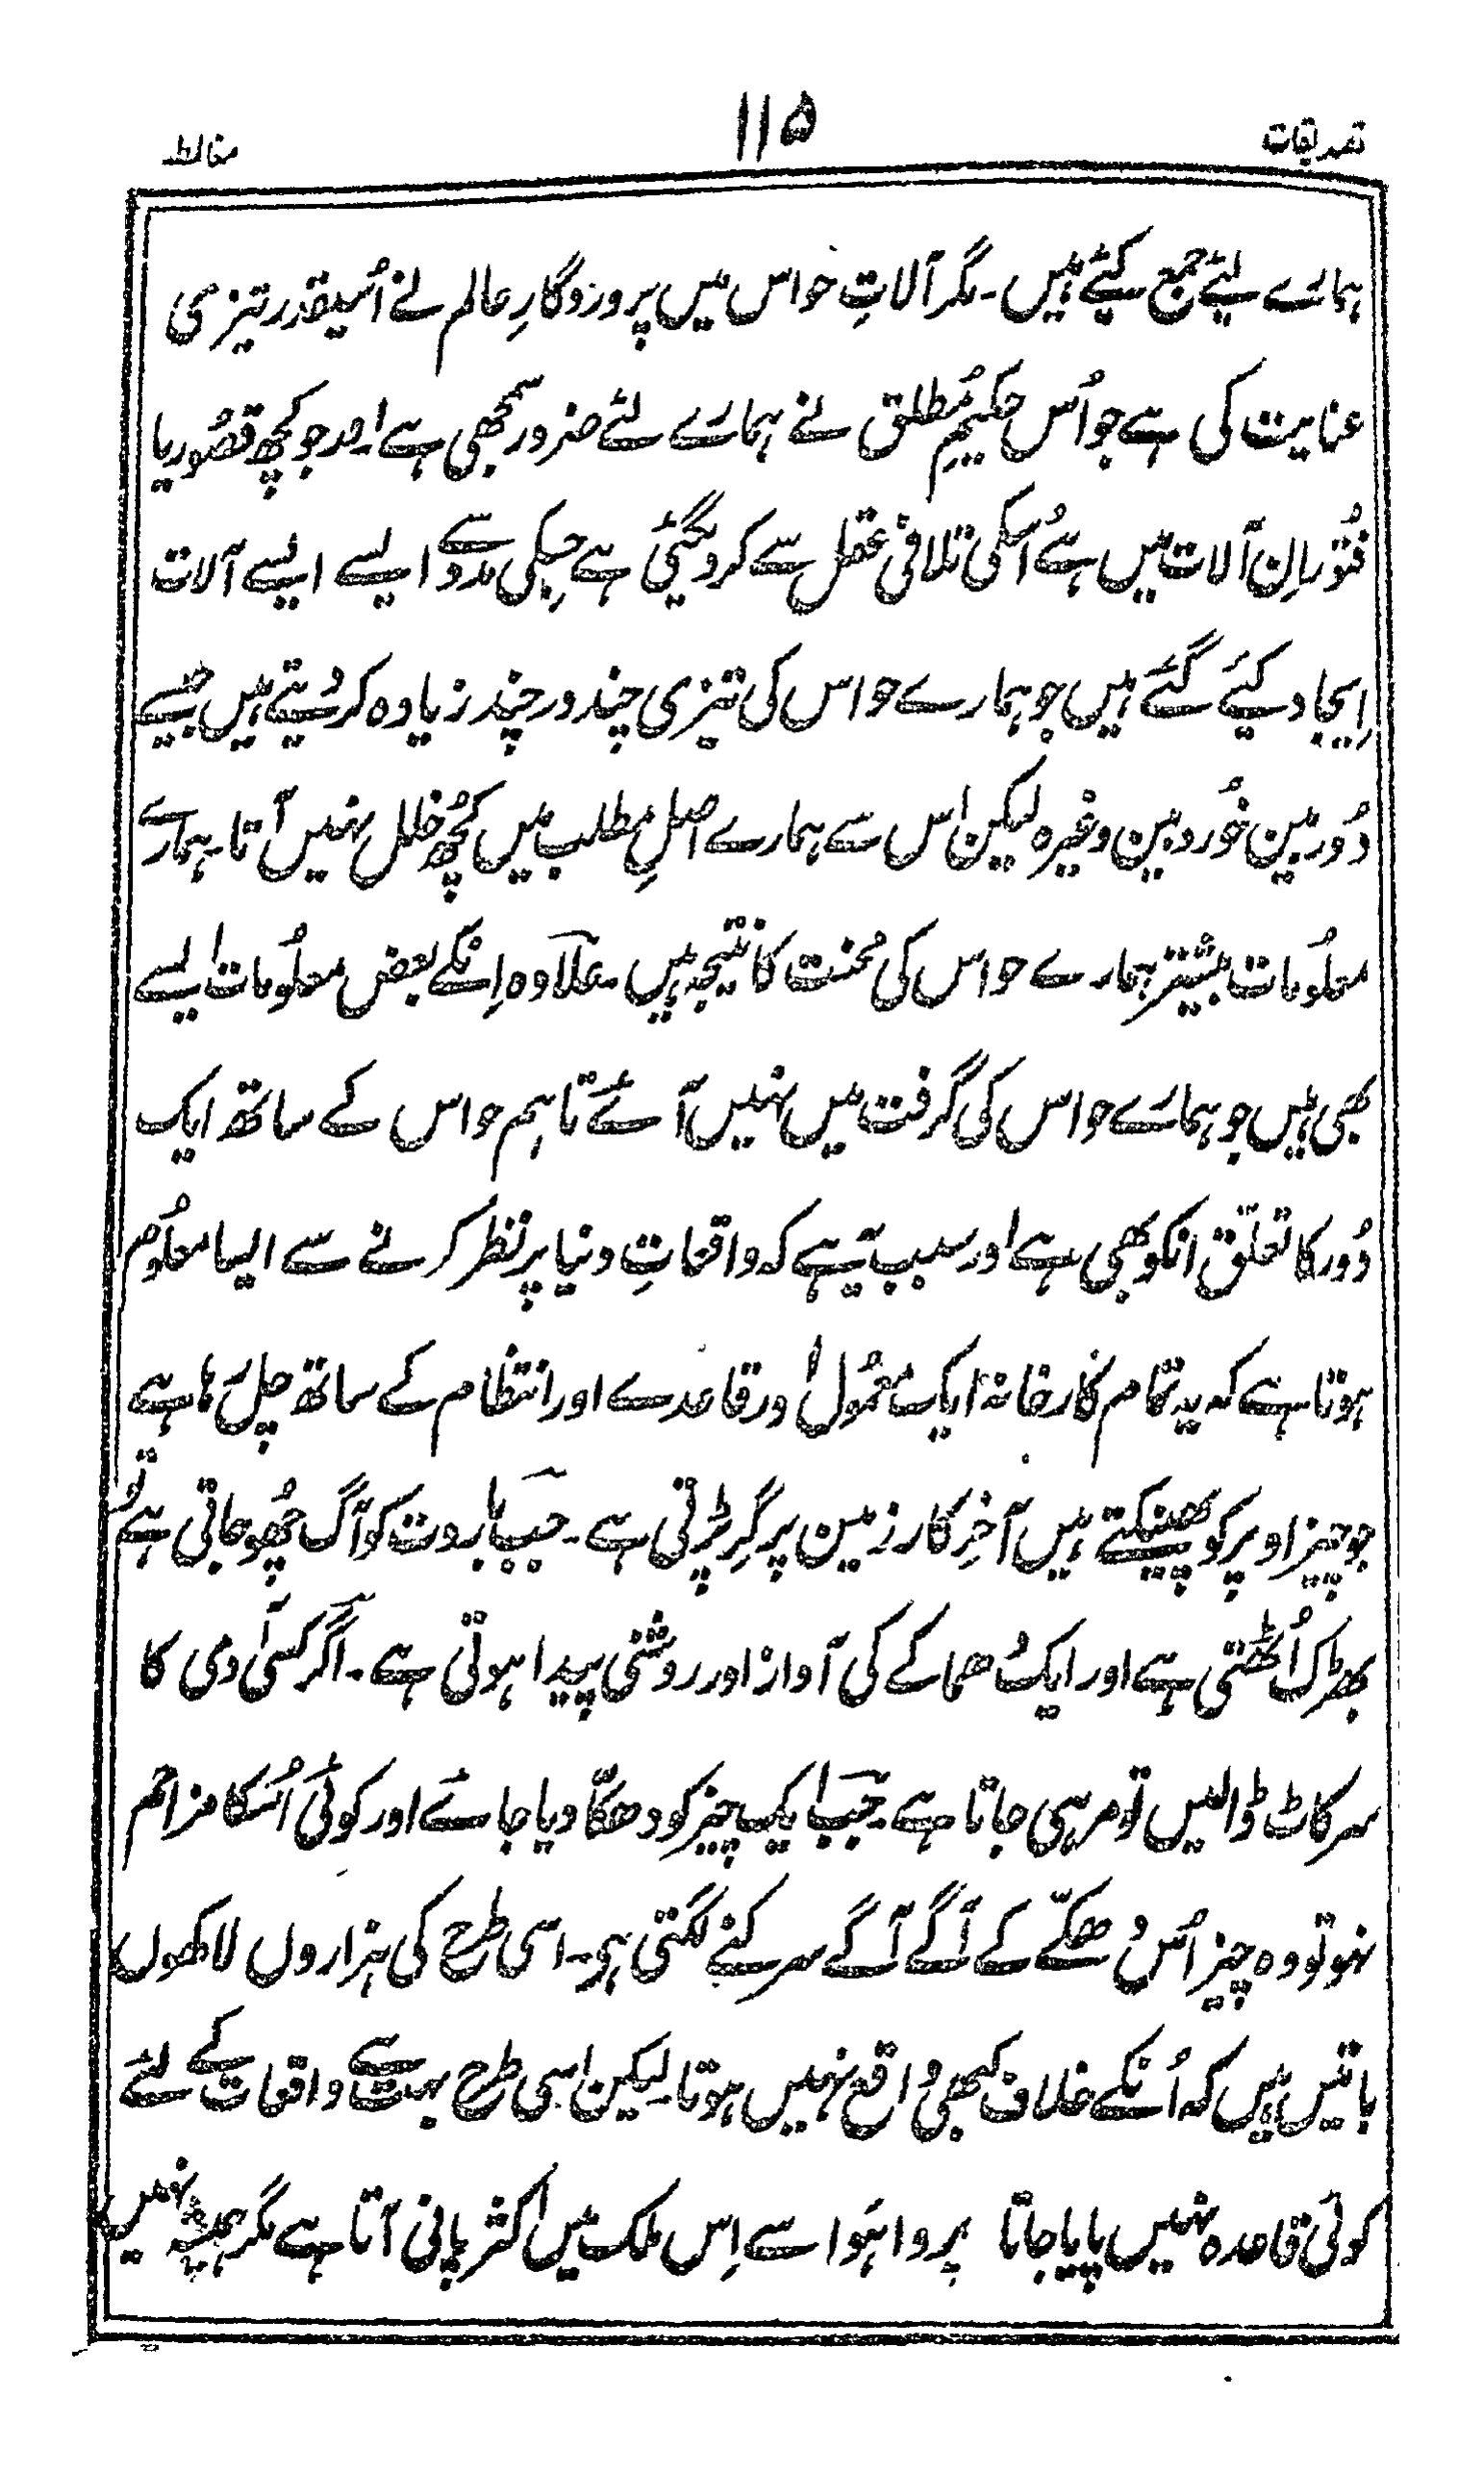 تصدیقات ۱۱۵ مغالطہ
ہمارے لیئے جمع کیئے ہیں ۔ مگر آلاتِ حواس میں پروردگارِ عالم نے اُسیقدر تیزی
عنایت کی ہے جو اُس حکیمِ مُطلق نے ہمارے لئے ضرور سمجھی ہے اور جو کچھ قصُور یا
فتُور اِن آلات میں ہے اُسکی تلافی عقل سے کر دیگئی ہے جسکی مدد سے ایسے ایسے آلات
اِیجاد کیئے گئے ہیں جو ہمارے حواس کی تیزی چند در چند زیادہ کر دیتے ہیں جیسے
دُوربین خُوردبین وغیرہ لیکن اس سے ہمارے اصلِ مطلب میں کچُھ خلل نہیں آتا ۔ ہمارے
معلُومات بیشتر ہمارے حواس کی محُنت کا نتیجہ ہیں ۔ علاوہ اِنکے بعض معلُومات ایسے
بھی ہیں جو ہمارے حواس کی گرفت میں نہیں آئے تاہم حواس کے ساتھ ایک
دُور کا تعلّق انکو بھی ہے اور سبب یہ ہے کہ واقعاتِ دنیا پر نظر کرنے سے ایسا معلُوم
ہوتا ہے کہ یہ تمام کارخانہ ایک معمُول اور قاعدے اور انتظام کے ساتھ چل رہا ہے
جو چیز اوپر کو پھینکتے ہیں آخرِکار زمین پر گِر پڑتی ہے ۔ جب باروت کو آگ چُھو جاتی ہے تو
بھڑک اُٹھتی ہے اور ایک دھماکے کی آواز اور روشنی پیدا ہوتی ہے ۔ اگر کسی آدمی کا
سر کاٹ ڈالیں تو مر ہی جاتا ہے ۔ جب ایک چیز کو دھکّا دیا جائے اور کوئی اُسکا مزاحم
نہو تو وہ چیز اُس دھکّے کے آگے آگے سرکنے لگتی ہے ۔ اسی طرح کی ہزاروں لاکھوں
باتیں ہیں کہ اُنکے خلاف کبھی واقع نہیں ہوتا ۔ لیکن اسی طرح بہت سے واقعات کے لئے
کوئی قاعدہ نہیں پایا جاتا پروا ہَوا سے اِس ملک میں اکثر پانی آتا ہے مگر ہمیشہ نہیں